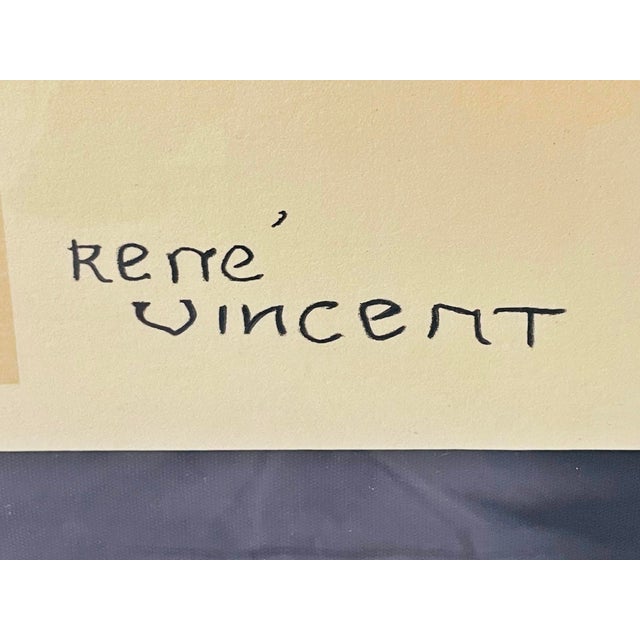 René
Vincent